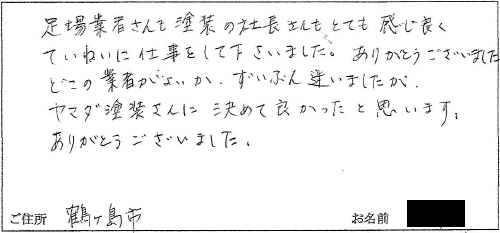 足場業者さんも塗装の社長さんもとても感じ良く
ていねいに仕事をして下さいました。ありがとうございました
どこの業者がよいか、ずいぶん迷いましたが、
ヤマダ塗装さんに決めて良かったと思います。
ありがとうございました。
ご住所 鶴ヶ島市 お名前